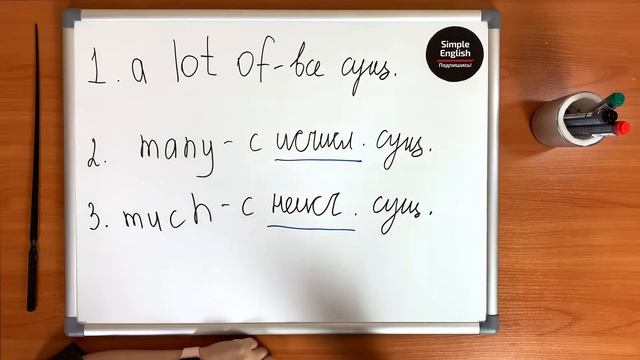 1. a lot of - все сущ.
2. many - с исчисл. сущ.
3. much - с неисч. сущ.
Simple
English
Подпишись!